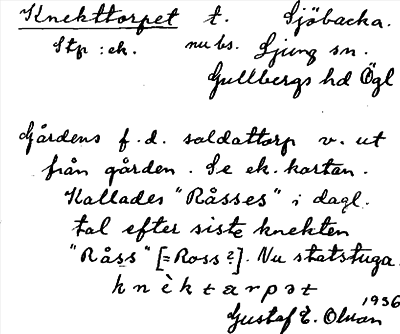 Knekttorpet t. Sjöbacka.
Stp : ek. nu bs. Ljung sn.
Gullbergs hd Ögl
Gårdens f.d. soldattorp v. ut
från gården. Se ek. kartan.
Kallades "Råsses" i dagl.
tal efter siste knekten
"Råss" [=Ross?]. Nu statstuga.
knèktarpət
1936
Gustaf E. Olsson